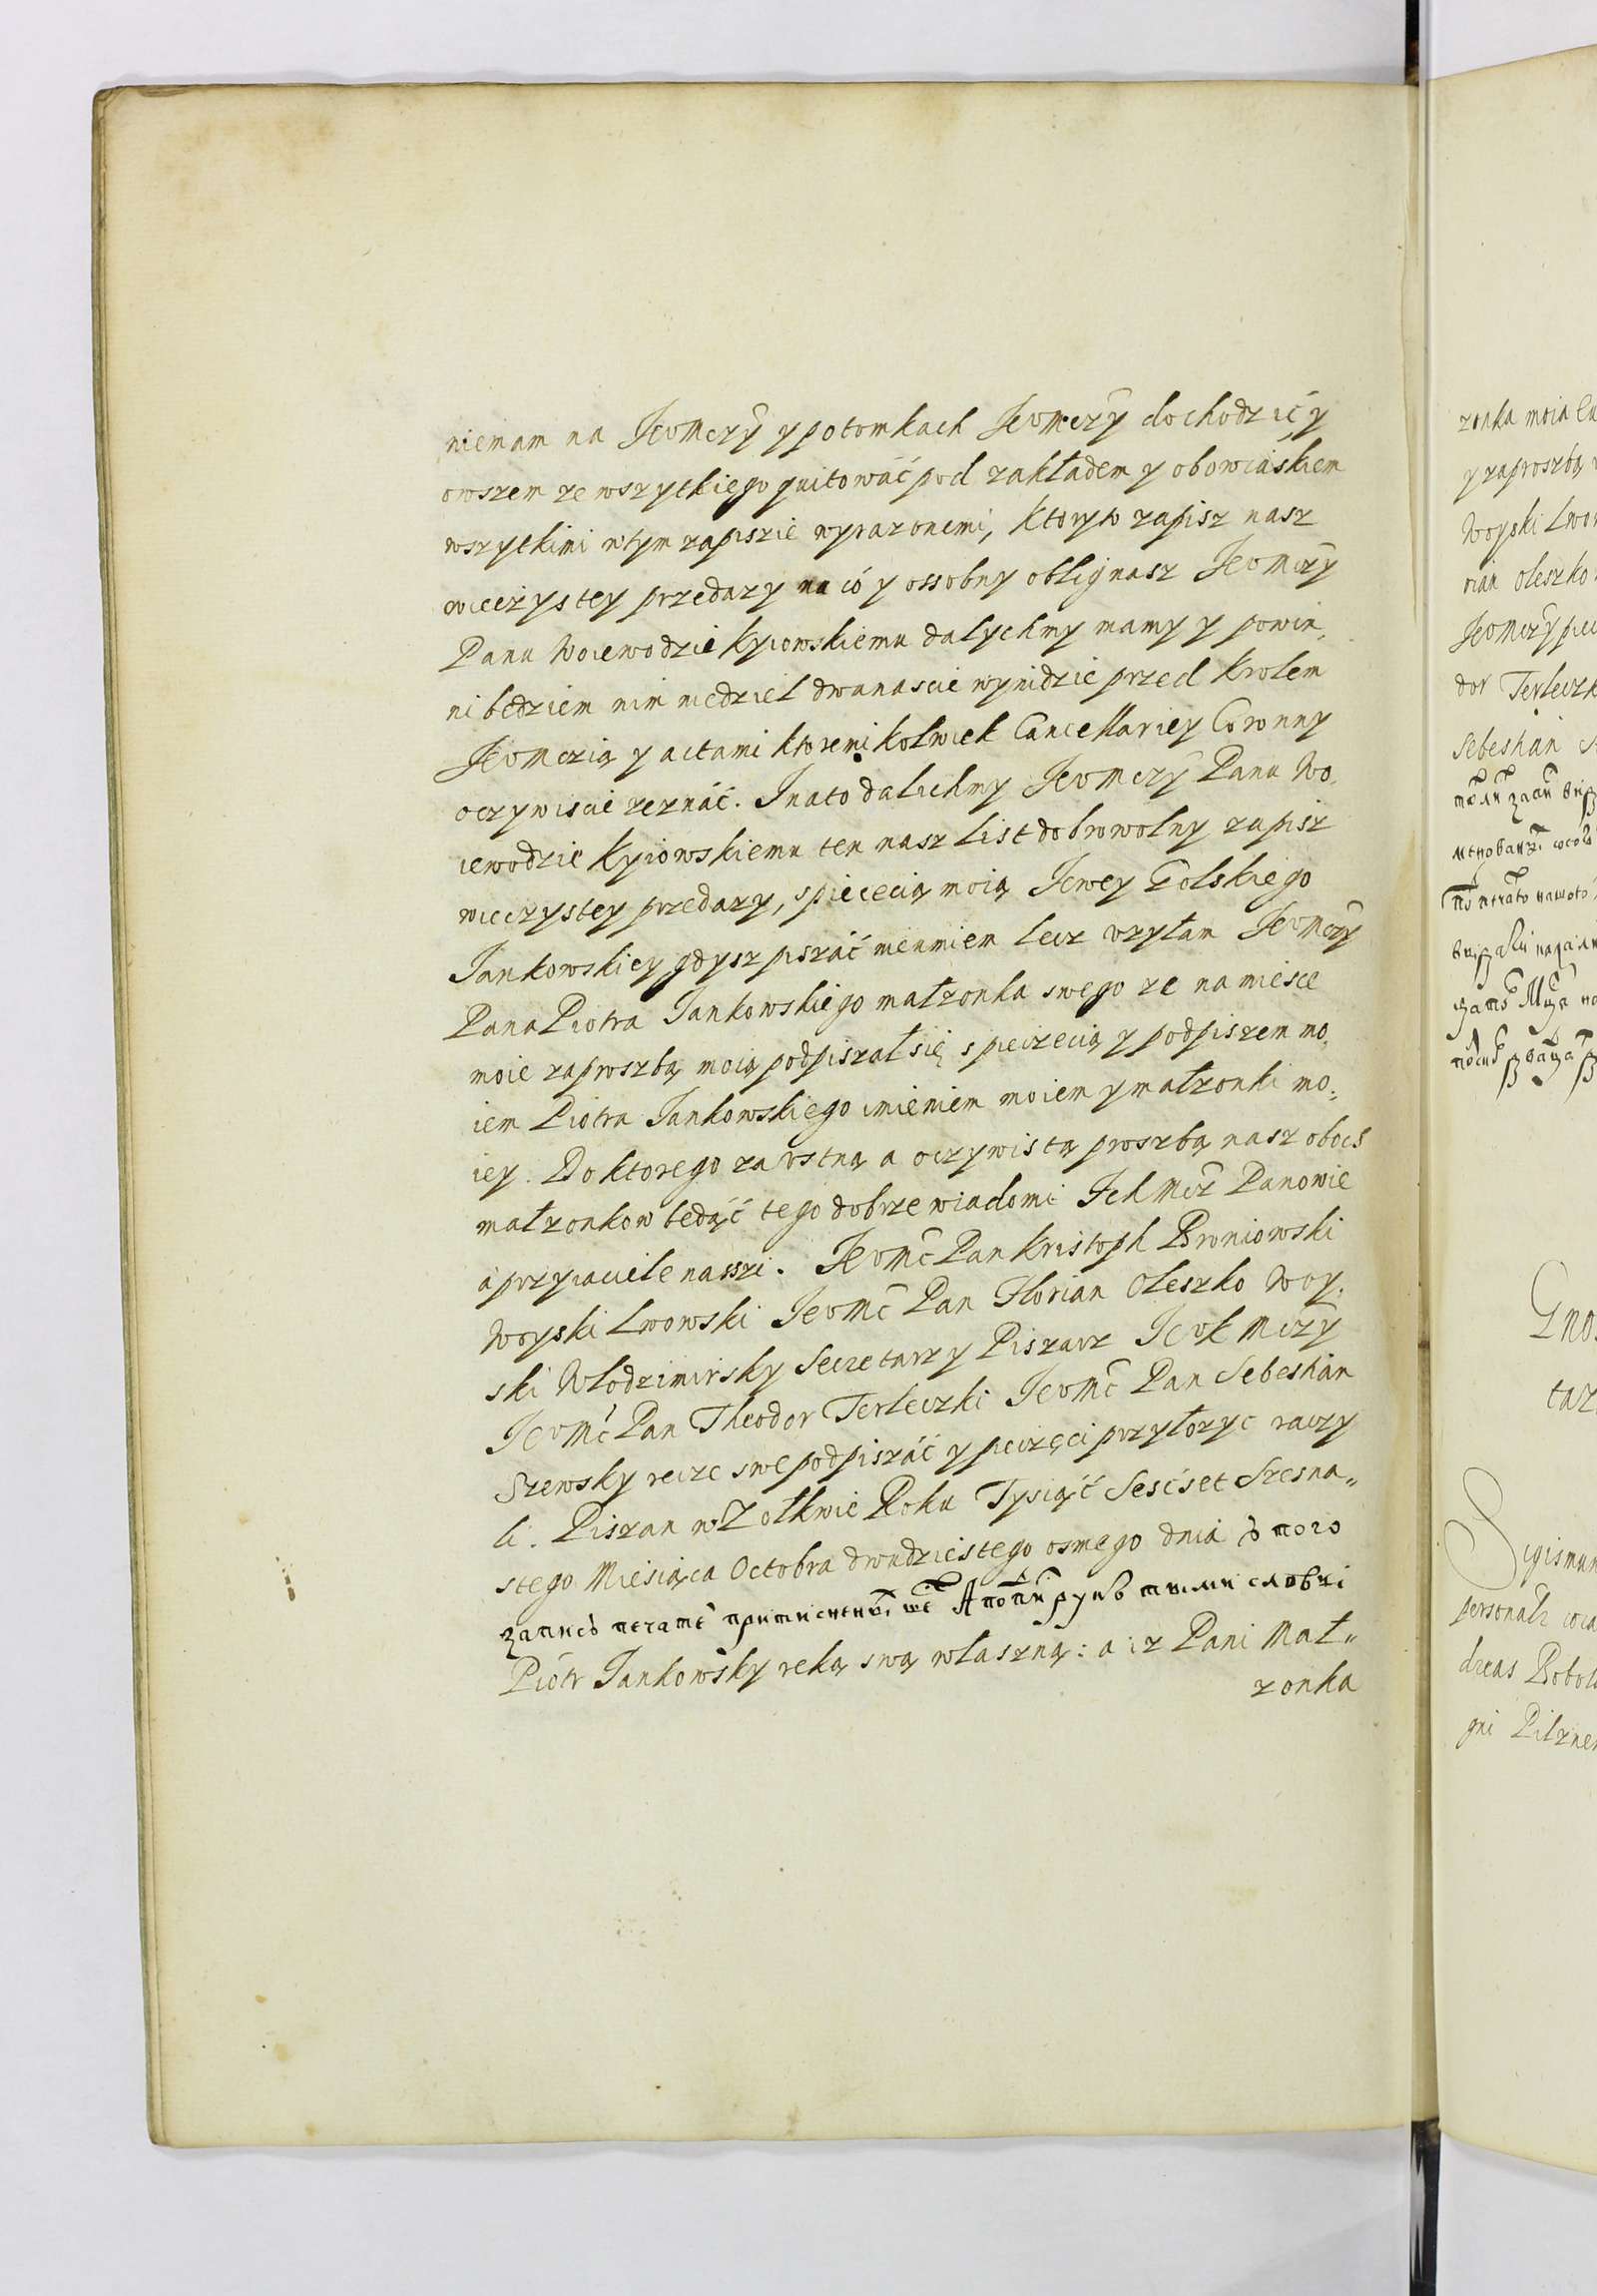 niemam na Jeomczy y potomkach Jeomczy dochodzić y
owszem ze wszytkiego quitowáć pod zakładem y obowiąskiem
wszytkimi wtym zapiszie wyrazonemi, Ktoryto zapisz nasz
wieczystey przedazy na có y ossobny oblignasz Jeomczy
Panu Woiewodzie Kyiowskiemu dalychmy mamy y powin,
ni będziem nim niedziel dwanascie wynidzie przed Krolem
Jeomczią y actami ktoremikolwiek Cancellariey Coronny
oczywiscie zeznáć. Inato dalichmy Jeomczy Panu Wo,
iewodzie Kyiowskiemu ten nasz List dobrowolny zapisz
wieczystey przedazy, spieczecią moią Jewey Golskiego
Jankowskiey gdysz pszáć nieumiem lecz vzyłam Jeomczy
Pana Piotra Jankowskiego małzonka swego ze na miesce
moie zaproszbą moią podpiszał się s pieczecią y podpiszem mo,
iem Piotra Jankowskiego imieniem moiem y małzonki mo,
iey. Do ktorego za vstną a oczywistą proszbą nasz oboch
małzonkow będąć tego dobrze wiadomi Ich Mcz Panowie
a przyiaciele nasszi. Jeomć Pan Kristoph Broniowski
Woyski Lwowski Jeomć Pan Florian Oleszko Woy,
ski Włodzimirsky Secretarz y Piszarz Jeok Mczy
Jeomć Pan Theodor Terleczki Jeomć Pan Sebeshán
Szewsky recze swe podpiszáć y pieczęci przyłozyc raczy
li. Piszan w Zołkwie Roku Tysiąćć Sescset Szesna,,
stego Miesiąca Octobra dwudziestego osmego dnia ѹ того
запису печате притисненых шесть А подпи рукъ тыми словы
Piotr Jankowsky reką swą właszną: a iz Pani Mał,,
zonka
zonka moia
y zaproszbą
Woyski Lwow
rian Oleszko
Jeomczy piec
dor Terleczk
Sebeshán
Gno
taz
Sigismun
personalr
dreas Bobol
gni Pilzne